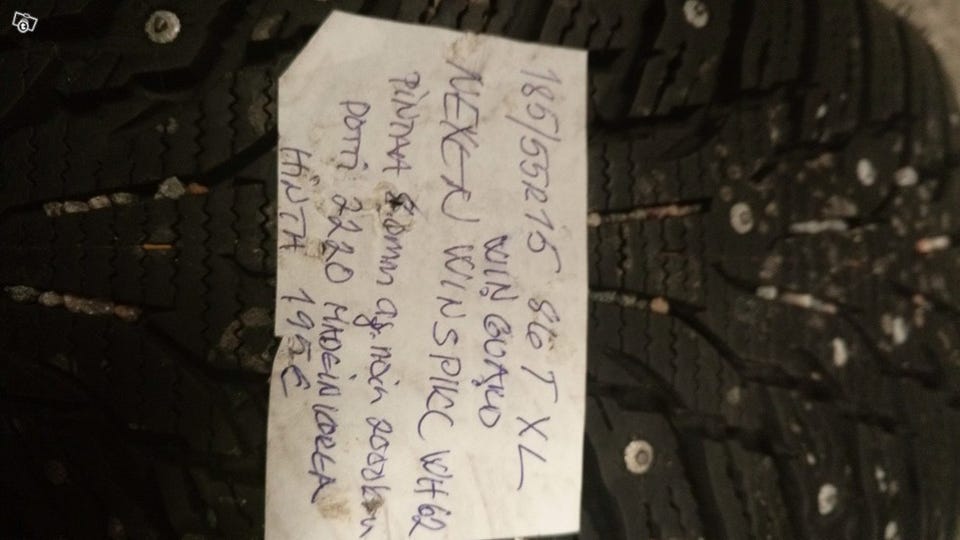 185/55R15 86 T XL
WINGUARD
NEXEN WINSPIKE WH62
PINTAA 8.0mm aj. noin 2000km
DOTTI 2220 MADE IN KOREA
HINTA 195€